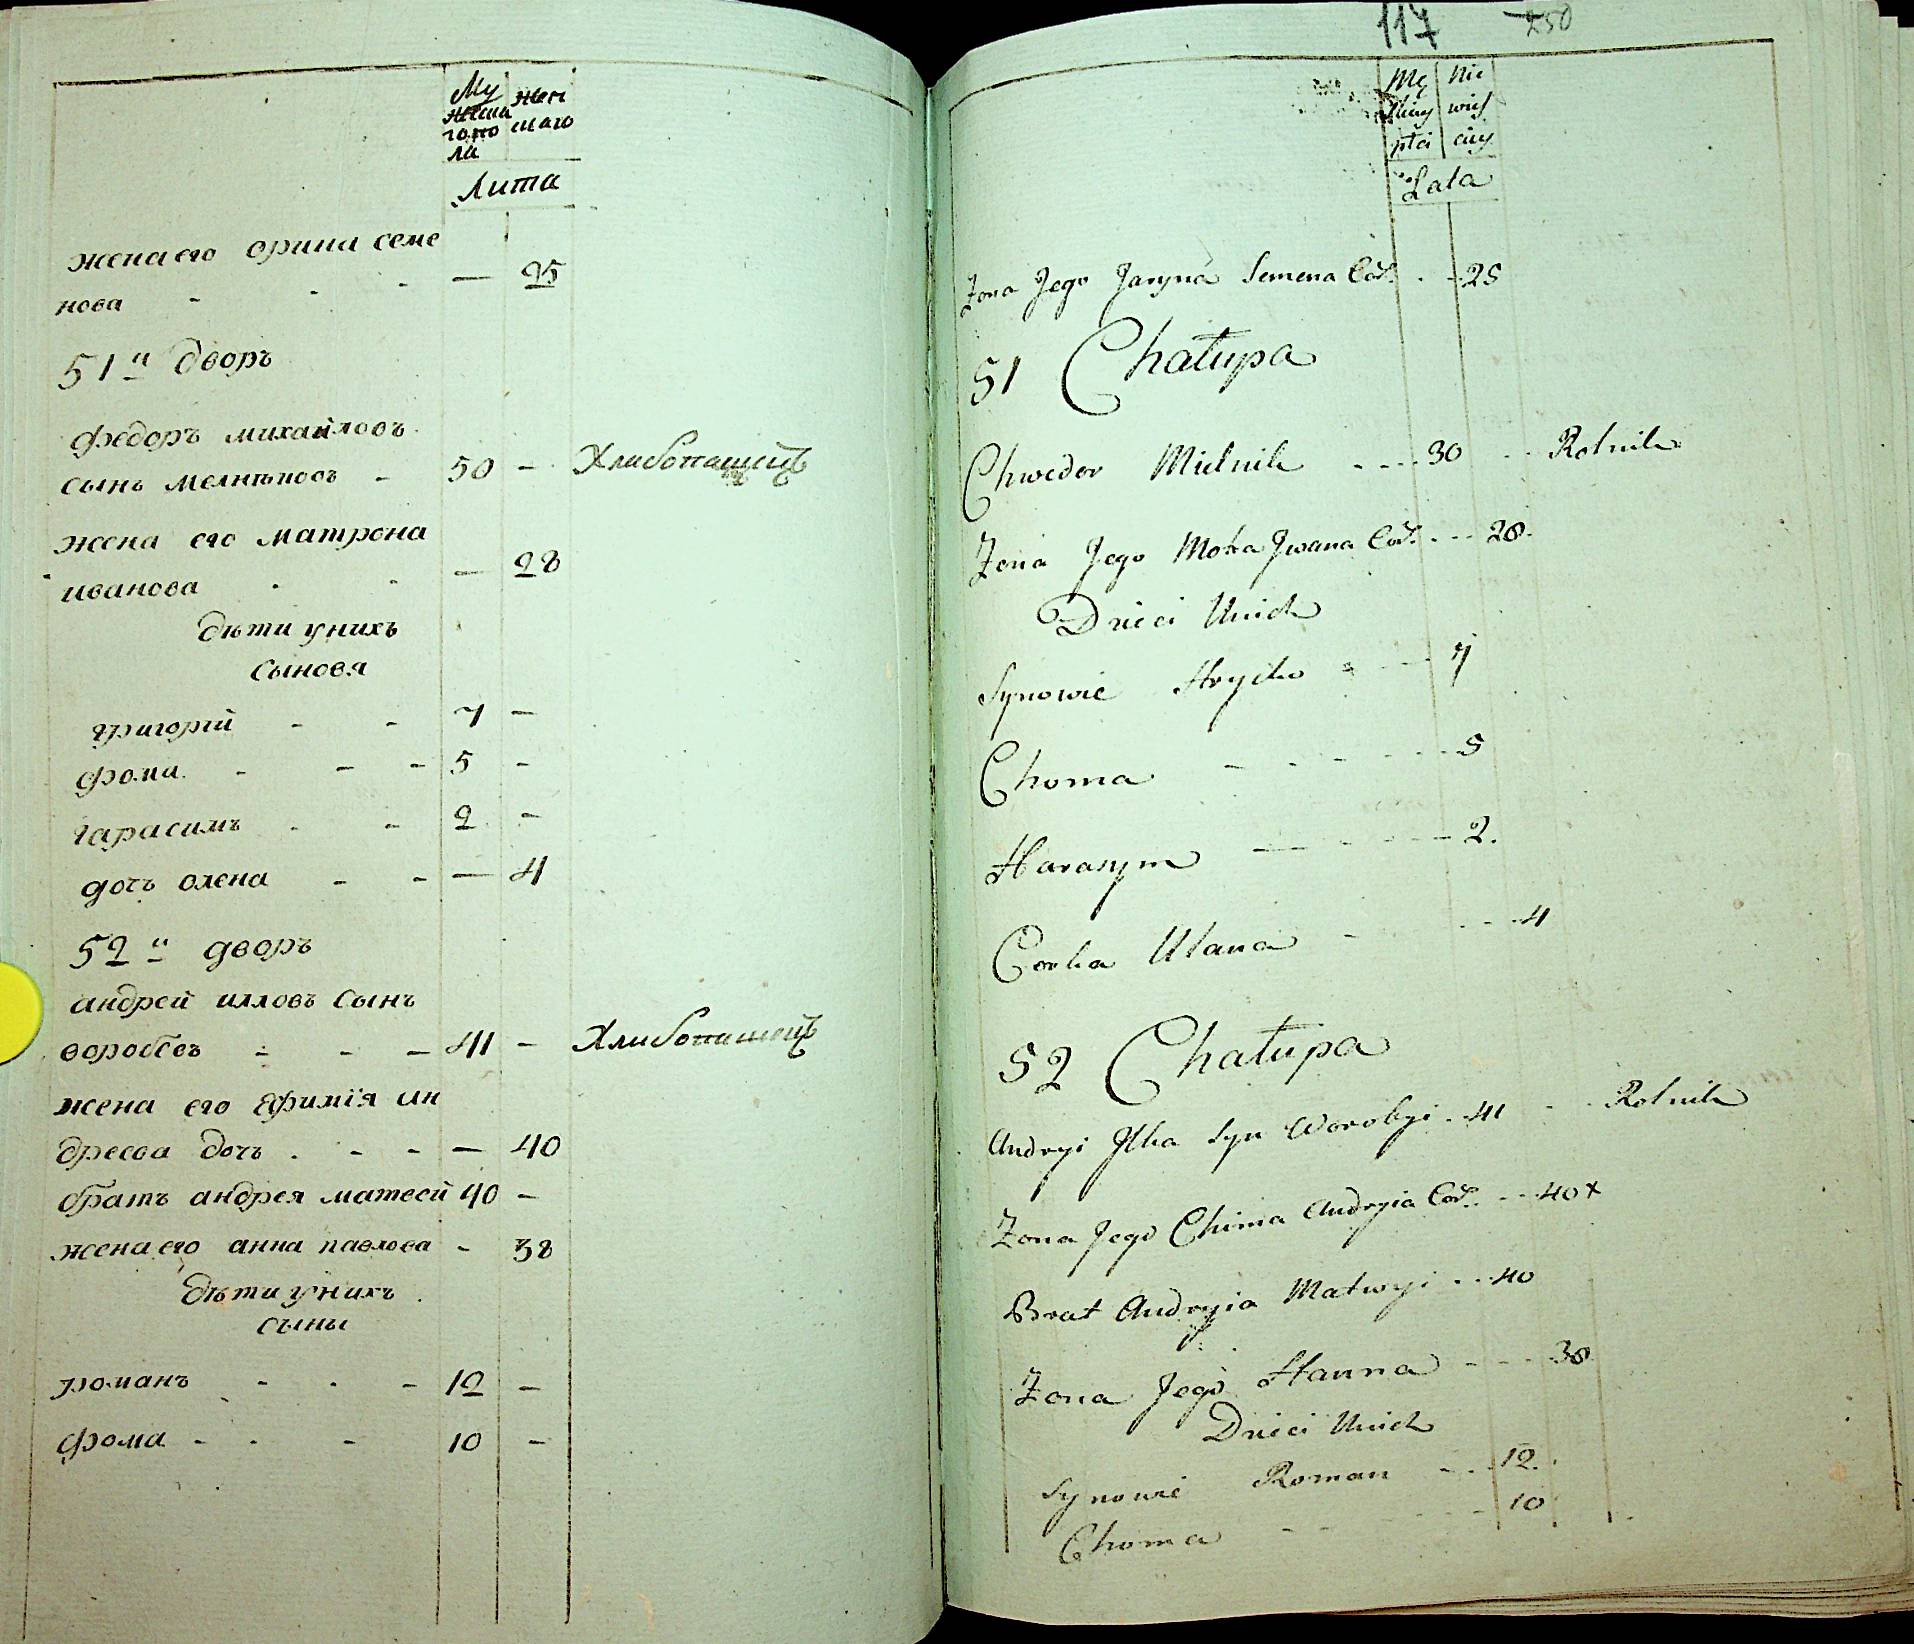 Му
жеска
го по
ла
жен
скаго
Лита
жена его орина семе
нова - - - — 25
51й дворъ
федоръ михайловъ
сынъ мелниковъ - 50 - Хлибопашецъ
жена его матрона
иванова - - — 28
дѣти у нихъ
сыновя
григорій - - 7 —
фома - - - 5 -
гарасимъ - - 2 -
дочъ олена - - — 4
52й дворъ
андрей илловъ сынъ
воробьевъ - - - 41 - Хлибопашецъ
жена его Ефимія ан
дреева дочъ - - - — 40
братъ андрея матвей 40 -
жена его анна павлова - 38
дѣти у нихъ
сыны
романъ - - - 12 -
фома - - - 10 -
117 250
Mę
skiey
płci
Nie
wieś
ciey
Lata
Zona Jego Jaryna Semena Cór. - - 25
51 Chałupa
Chwedor Mielnik - - - 30 - - Rolnik
Zona Jego Motra Jwana Cór. - - - 28.
Dzieci Unich
Synowie Hryćko - - - 7
Choma - - - - - 5
Harasym - - - - 2.
Corka Ulana - - - 4
52 Chałupa
Andryi Jlka Syn Worobyi - 41 - - Rolnik
Zona Jego Chima Andryia Cór. - - 40 x
Brat Andryia Matwyi - - 40
Zona Jego Hanna - - - 38
Dzieci Unich
Synowie Roman - - 12.
Choma - - - - 10